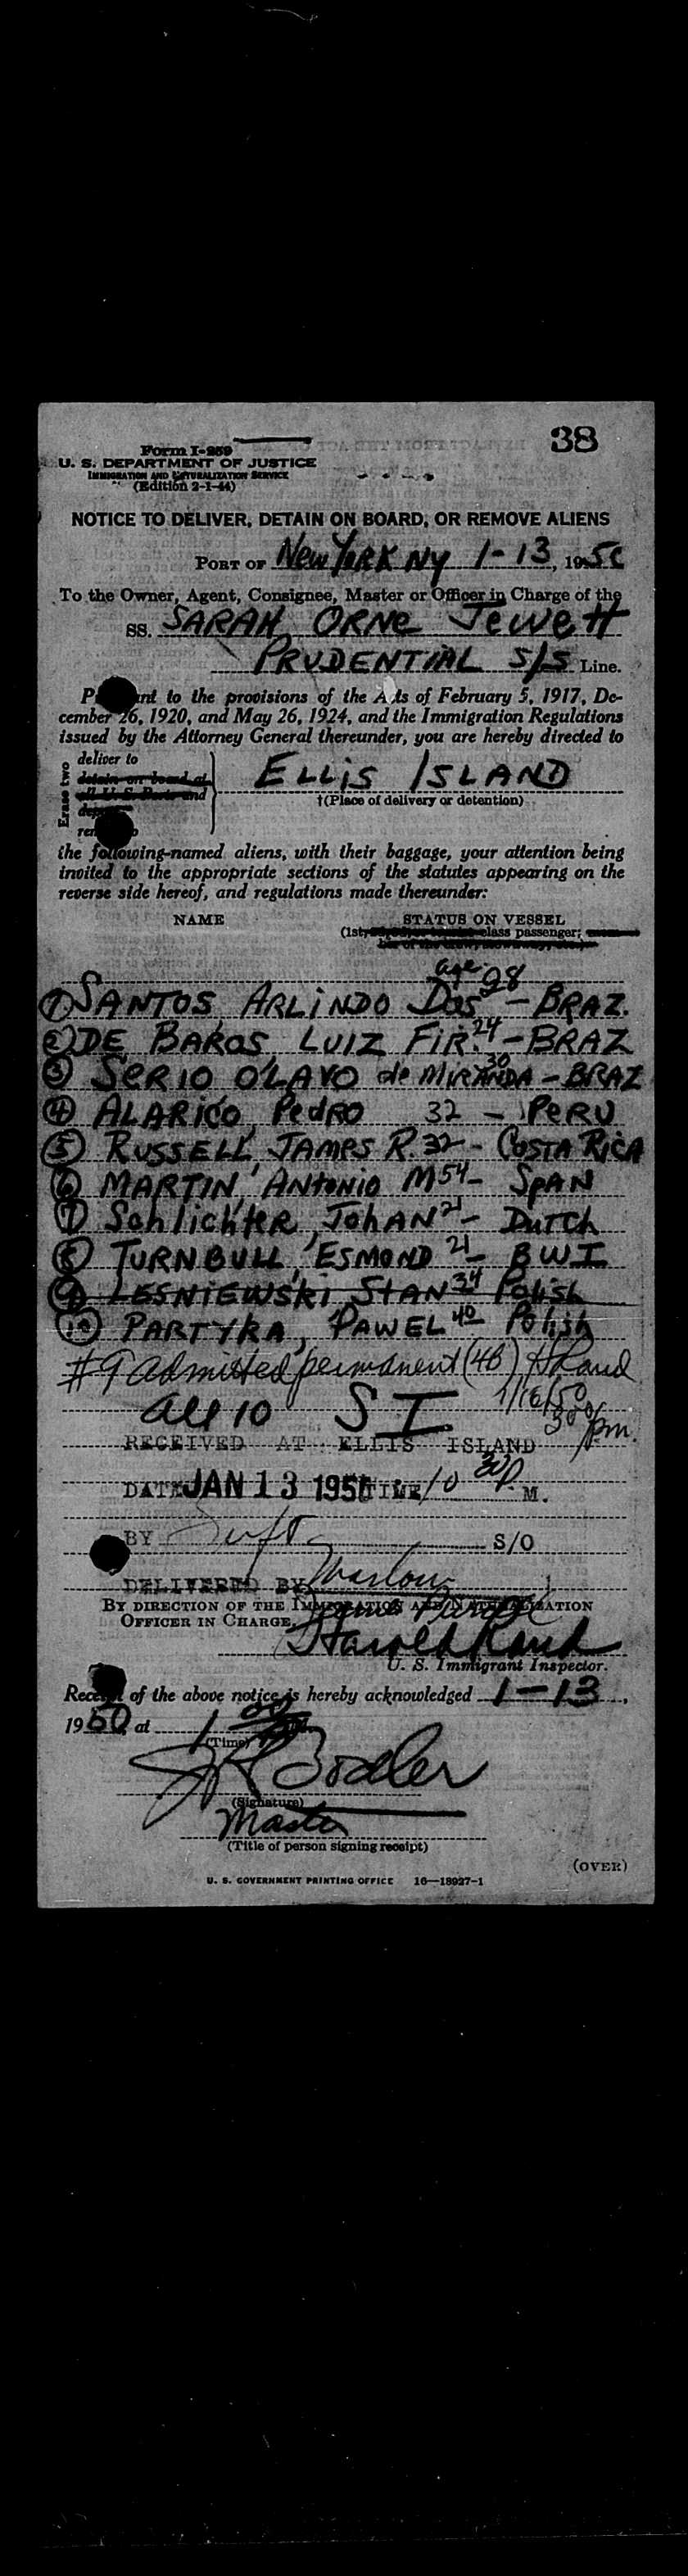 38
Form I-259
U. S. DEPARTMENT OF JUSTICE
IMMIGRATION AND NATURALIZATION SERVICE
(Edition 2-1-44)
NOTICE TO DELIVER, DETAIN ON BOARD, OR REMOVE ALIENS
PORT OF New York NY 1-13, 1950
To the Owner, Agent, Consignee, Master or Officer in Charge of the
SS. SARAH ORNE JeweTT
PRUDENTIAL S/S Line.
Pursuant to the provisions of the Acts of February 5, 1917, De-
cember 26, 1920, and May 26, 1924, and the Immigration Regulations
issued by the Attorney General thereunder, you are hereby directed to
Erase two
deliver to
detain on board at
ELLIS ISLAND
†(Place of delivery or detention)
the following-named aliens, with their baggage, your attention being
invited to the appropriate sections of the statutes appearing on the
reverse side hereof, and regulations made thereunder:
NAME STATUS ON VESSEL
(1st, class passenger;
age
① SANTOS ARLINDO DOS 28 - BRAZ.
② DE BAROS LUIZ FIR. 24 - BRAZ
③ SERIO OLAVO de MIRANDA 30 - BRAZ
④ ALARICO PEdRO 32 - PERU
⑤ RUSSELL, JAMES R. 32 - COSTA RICA
⑥ MARTIN, ANTONIO M 54 - SPAN
⑦ Schlichter, JOHAN 21 - DUTCh
⑧ TURNBULL, ESMOND 21 - BWI
⑨ LESNIEWSKI STAN 34 Polish
⑩ PARTYKA, PAWEL 40 - Polish
#9 admitted permanent (4B) H Rand
1/16/50
300 pm.
all 10 SI
RECEIVED AT ELLIS ISLAND
DATE JAN 13 1950 TIME 10 30 P. M.
BY S/O
DELIVERED BY Marlow
BY DIRECTION OF THE IMMIGRATION AND NATURALIZATION
OFFICER IN CHARGE,
Harold Rand
U. S. Immigrant Inspector.
Receipt of the above notice is hereby acknowledged 1-13,
1950, at 1
(Time)
(Signature)
Master
(Title of person signing receipt)
(OVER)
U. S. GOVERNMENT PRINTING OFFICE 16—18927-1